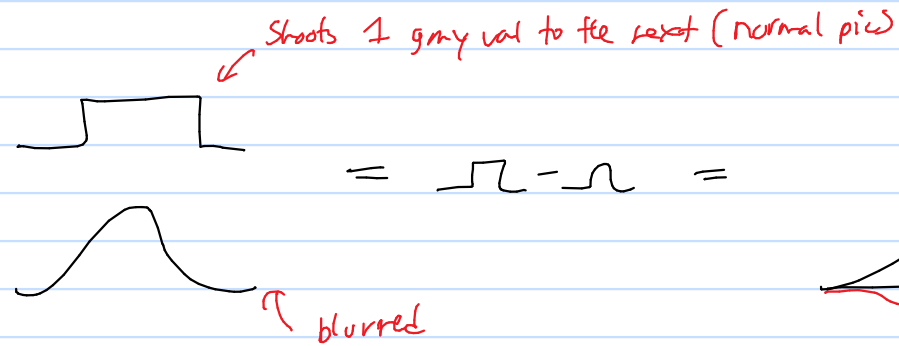 Shoots 1 gray val to the next (normal pic)
= - =
blurred